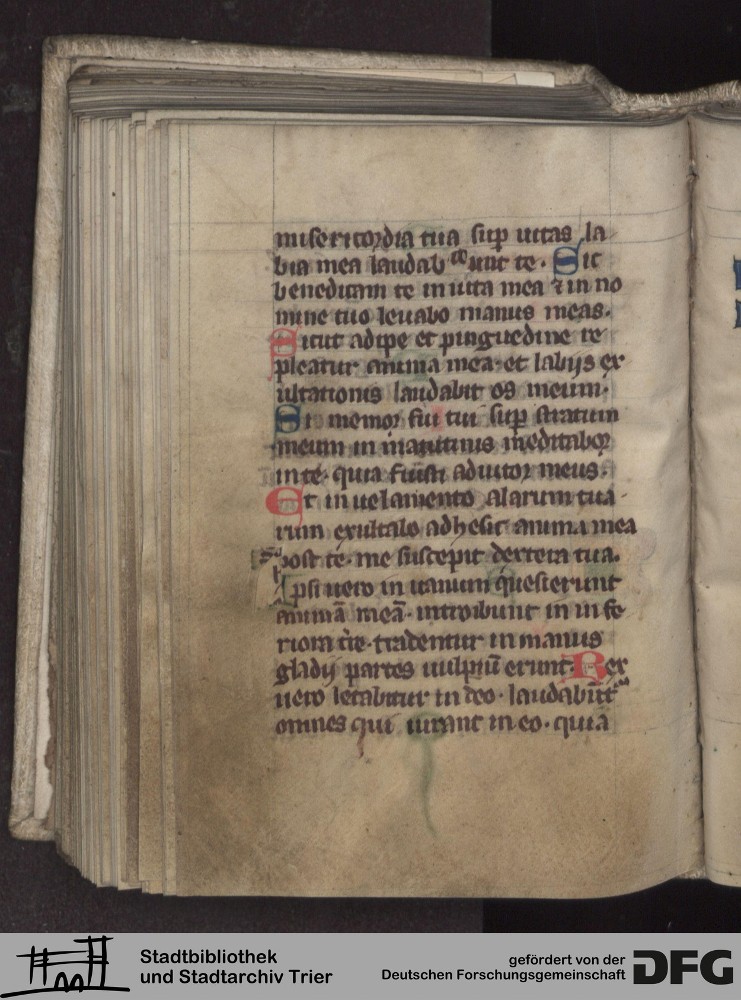 misericordia tua sup uitas la
bia mea laudab unt te. Sic
benedicam te in uita mea ⁊ in no
mine tuo leuabo manus meas.
Sicut adipe et pinguedine re
pleatur anima mea. et labijs ex
ultationis laudabit os meum.
Si memor fui tui sup stratum
meum in matutinis meditabor
in te. quia fuisti adiutor meus.
Et in uelamento alarum tua
rum exultabo adhesit anima mea
post te. me suscepit dextera tua.
Ipsi uero in uanum quesierunt
animā meā. introibunt in infe
riora tre. tradentur in manus
gladij partes uulpiū erunt. Rex
uero letabitur in deo. laudabūt
omnes qui iurant in eo. quia
Stadtbibliothek
und Stadtarchiv Trier
gefördert von der
Deutschen Forschungsgemeinschaft
DFG